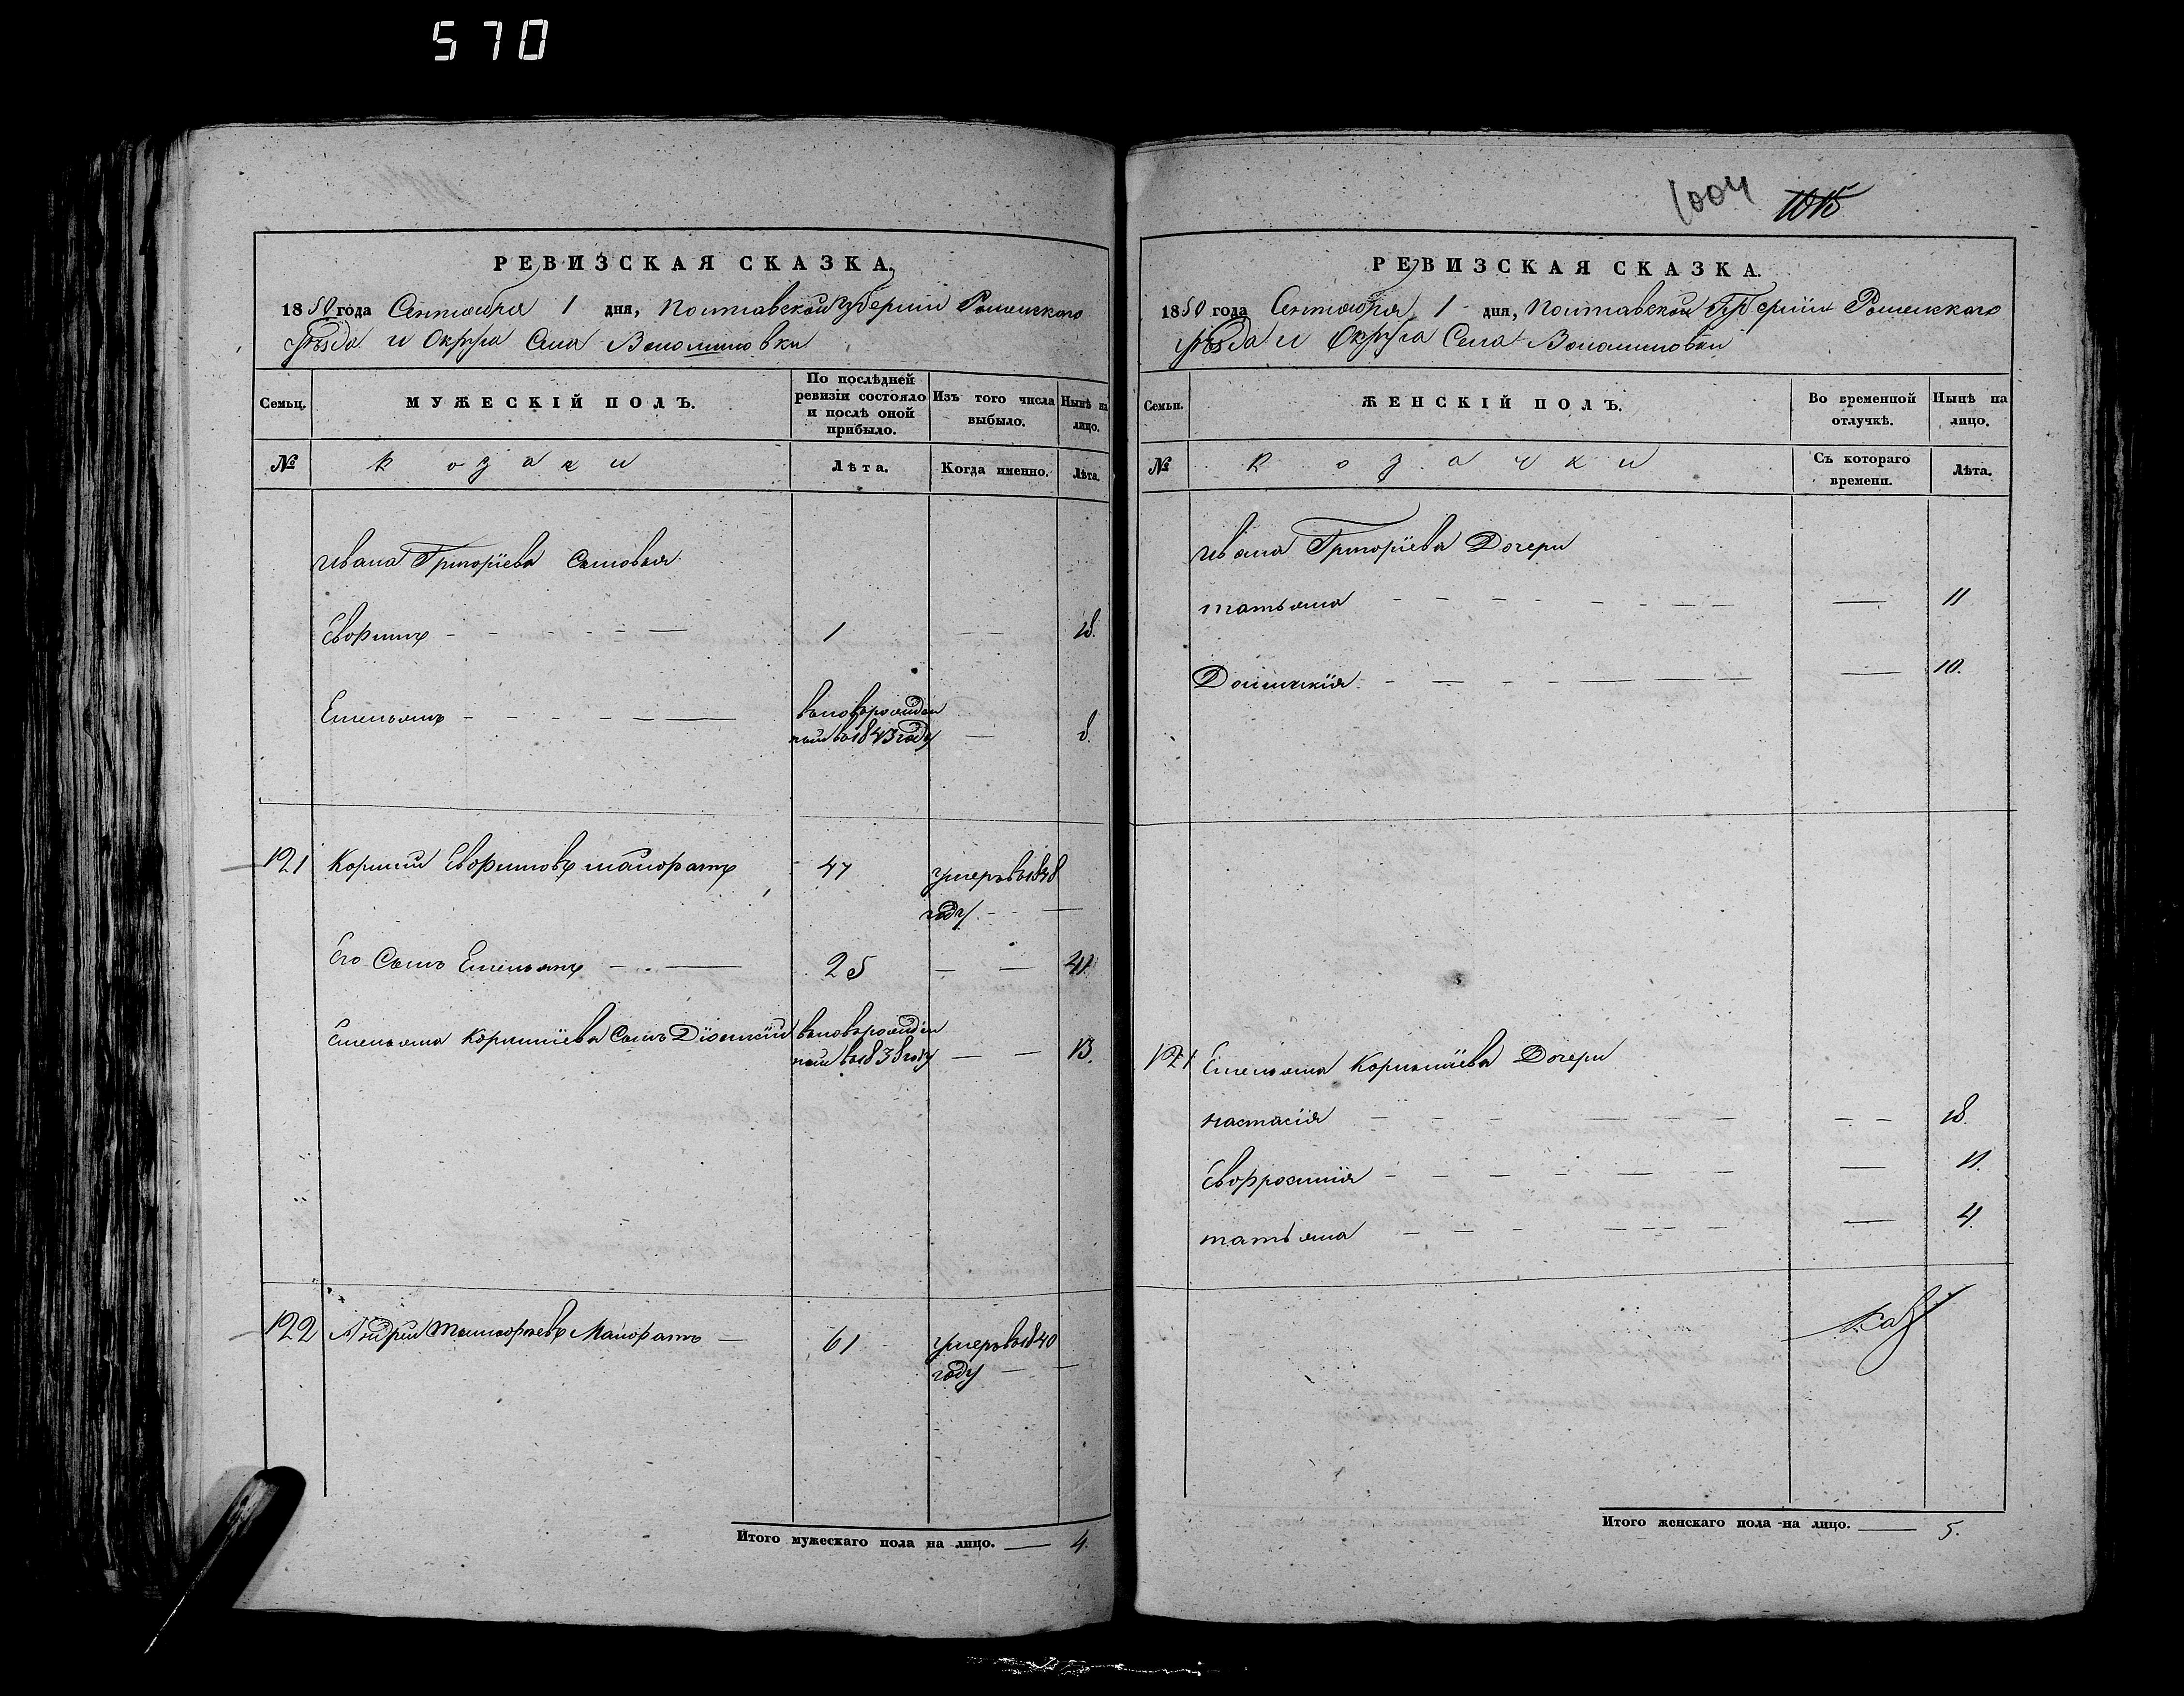 570
РЕВИЗСКАЯ СКАЗКА.
1850 года Сентября 1 дня, Полтавской губернии Роменского
уѣзда и Округа Села Волошиновки
Семьи.
МУЖЕСКІЙ ПОЛЪ.
По послѣдней ревизіи состояло и послѣ оной прибыло.
Изъ того числа выбыло.
Нынѣ на лицо.
№
козаки
Лѣта.
Когда именно.
Лѣта.
Ивана Григоріева Сыновья
Евфимъ 1 18.
Емельянъ
8.
121 Корнѣй Евфимовъ 47 умеръ в 1848
году
Его Сынъ Емельянъ 25 41.
Емельяна Корнѣіева Сынъ
в 1838 году 13.
122 Андрей 61 умеръ в 1840
году
Итого мужескаго пола на лицо. 4.
1004 1015
РЕВИЗСКАЯ СКАЗКА.
1850 года Сентября 1 дня, Полтавской Губерніи Роменского
уѣзда и Округа Села Волошиновки
Семьи.
ЖЕНСКІЙ ПОЛЪ.
Во временной отлучкѣ.
Нынѣ на лицо.
№
козачки
Съ котораго времени.
Лѣта.
Ивана Григоріева Дочери
татьяна 11
10.
121 Емельяна Корнѣіева Дочери
настасія 18.
Евфросинія 11.
татьяна 4.
Итого женскаго пола на лицо. 5.